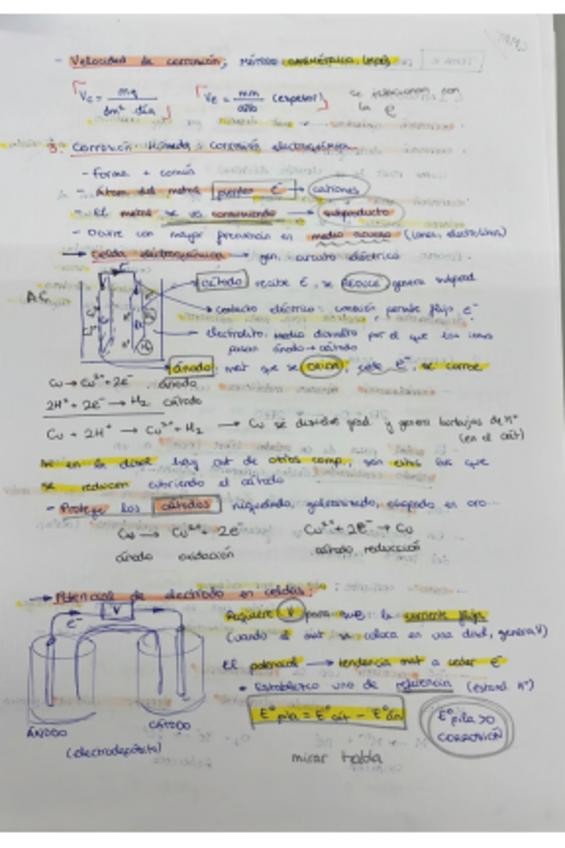 - Velocidad de corrosión, MÉTODO GRAVIMÉTRICO
Vc = mg / dm² día Ve = mm / año (espesor) se relacionan con la ρ
3. Corrosión Húmeda: corrosión electroquímica
- forma + común
- Átomo del metal pierde e⁻ → cationes
- El metal se va consumiendo → subproducto
- Ocurre con mayor frecuencia en medio acuoso (iones, electrolitos)
→ Celda electroquímica → gen. circuito eléctrico
e⁻
V
cátodo recibe e⁻, se REDUCE, genera subprod.
→ contacto eléctrico: conexión permite flujo e⁻
electrolito, medio disuelto por el que los iones
pasan ánodo → cátodo
ánodo, mat que se oxida, cede e⁻, se corroe
Cu → Cu²⁺ + 2e⁻ ánodo
2H⁺ + 2e⁻ → H₂ cátodo
Cu + 2H⁺ → Cu²⁺ + H₂ → Cu se disuelve grad. y genera burbujas de H⁺
(en el cát)
Si en la disol. hay cat de otros comp., son estos los que
se reducen cubriendo el cátodo
- Protege los cátodos niquelado, galvanizado, chapado en oro...
Cu → Cu²⁺ + 2e⁻ Cu²⁺ + 2e⁻ → Cu
ánodo oxidación cátodo, reducción
→ Potencial de electrodo en celdas:
V
e⁻
Requiere V para que la corriente fluya
(cuando el mat se coloca en una disol, genera V)
El potencial → tendencia mat a ceder e⁻
• Establezco uno de referencia (estand H⁺)
E° pila = E° cát − E° án
E° pila > 0
CORROSIÓN
ÁNODO
CÁTODO
(electrodepósito)
mirar tabla